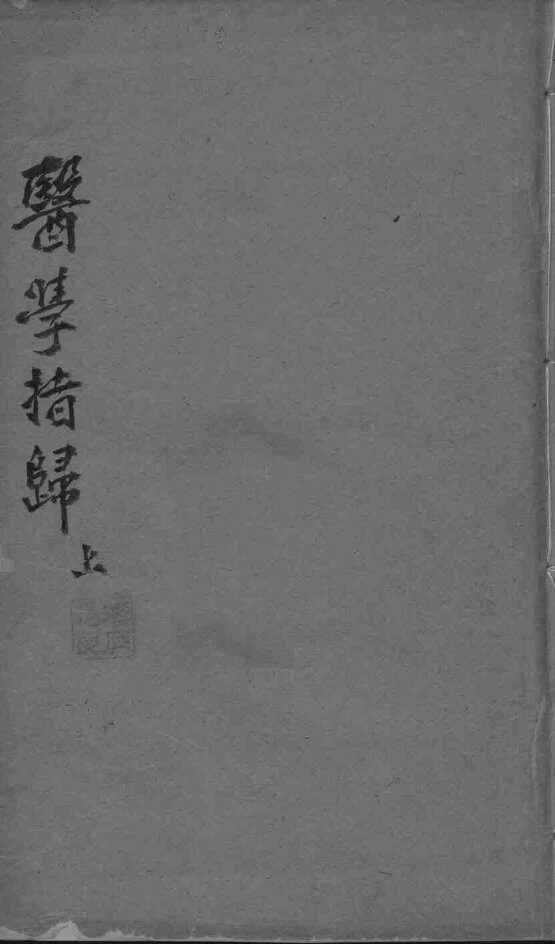 醫學指歸
上